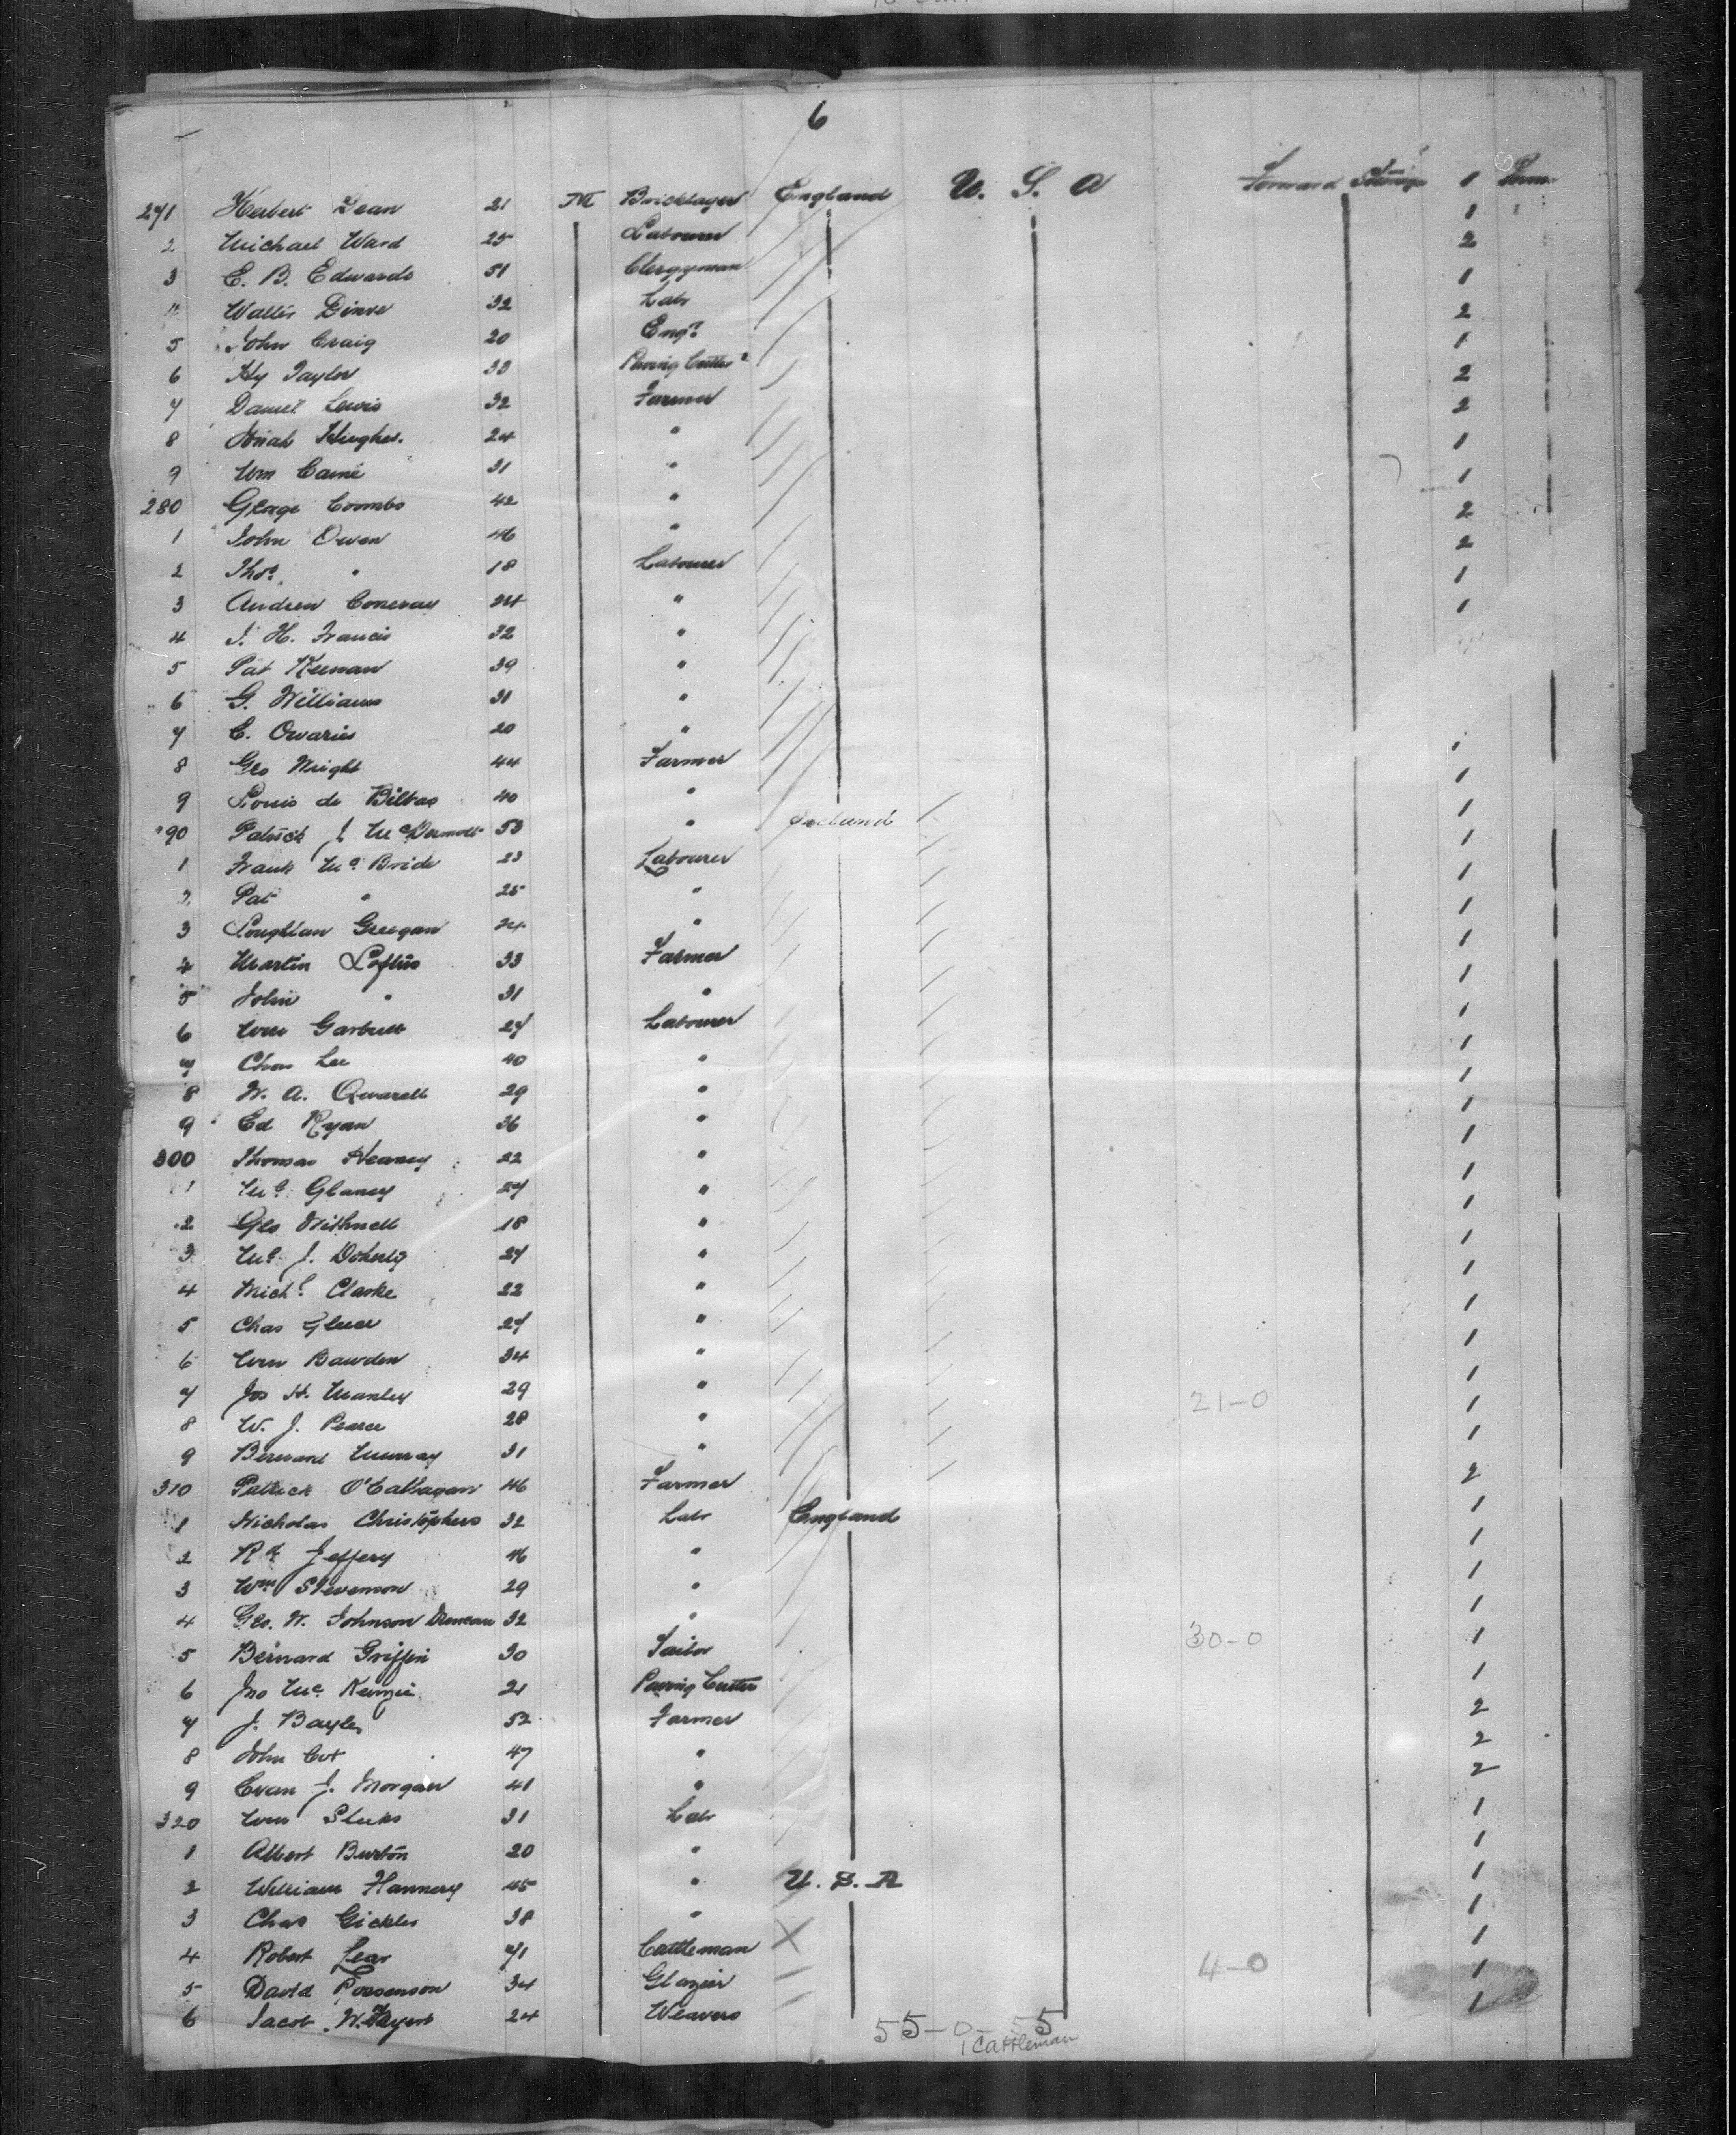 6
271 Herbert Dean 21 M Bricklayer England U. S. A Forward Steerage 1
2 Michael Ward 25 Labourer 1
3 E. B. Edwards 51 Clergyman 2
4 Walter 32 Labr 1
5 John Craig 20 Engr 2
6 Hy Taylor 33 Paving Cutter 1
7 Daniel Lewis 32 Farmer 2
8 Hughes. 24 " 2
9 Wm Caine 31 " 1
280 George Coombs 42 " 1
1 John Owen 46 " 2
2 Thos. " 18 Labourer 2
3 Andrew 24 " 1
4 J. H. Francis 32 " 1
5 Pat Keenan 39 "
6 G. Williams 31 "
7 E. 20 "
8 Geo Wright 44 Farmer 1
9 Louis de Bilbao 40 " 1
290 Patrick J McDermott 53 " Ireland 1
1 Frank McBride 23 Labourer 1
2 Pat " 25 " 1
3 Loughlan Greegan 24 " 1
4 Martin Loftus 33 Farmer 1
5 John " 31 " 1
6 Wm Garbutt 27 Labourer 1
7 Chas Lee 40 " 1
8 W. A. 29 " 1
9 Ed Ryan 36 " 1
300 Thomas Heaney 22 " 1
1 Glancy 27 " 1
2 Geo 18 " 1
3 J. Doherty 27 " 1
4 Michl Clarke 22 " 1
5 Chas 27 " 1
6 Wm Bawden 34 " 1
7 Jos H. Manley 29 " 21-0 1
8 W. J. Pearce 28 " 1
9 Bernard Murray 31 " 1
310 Patrick O'Callagan 46 Farmer 2
1 Nicholas Christophers 32 Labr England 1
2 Rd Jeffery 46 " 1
3 Wm Stevenson 29 " 1
4 Geo. W. Johnson Duncan 32 " 1
5 Bernard Griffin 30 Tailor 30-0 1
6 Jno McKenzie 21 Paving Cutter 1
7 J. Bayley 52 Farmer 2
8 John 47 " 2
9 Evan J. Morgan 41 " 2
320 Wm 31 Labr 1
1 Albert Burton 20 " 1
2 William Hannery 45 " U. S. A 1
3 Chas Gickles 38 " 1
4 Robert Lear 71 Cattleman X 1
5 David 34 Glazier 4-0 1
6 Jacob 24 Weavers 1
55-0-55
1 Cattleman